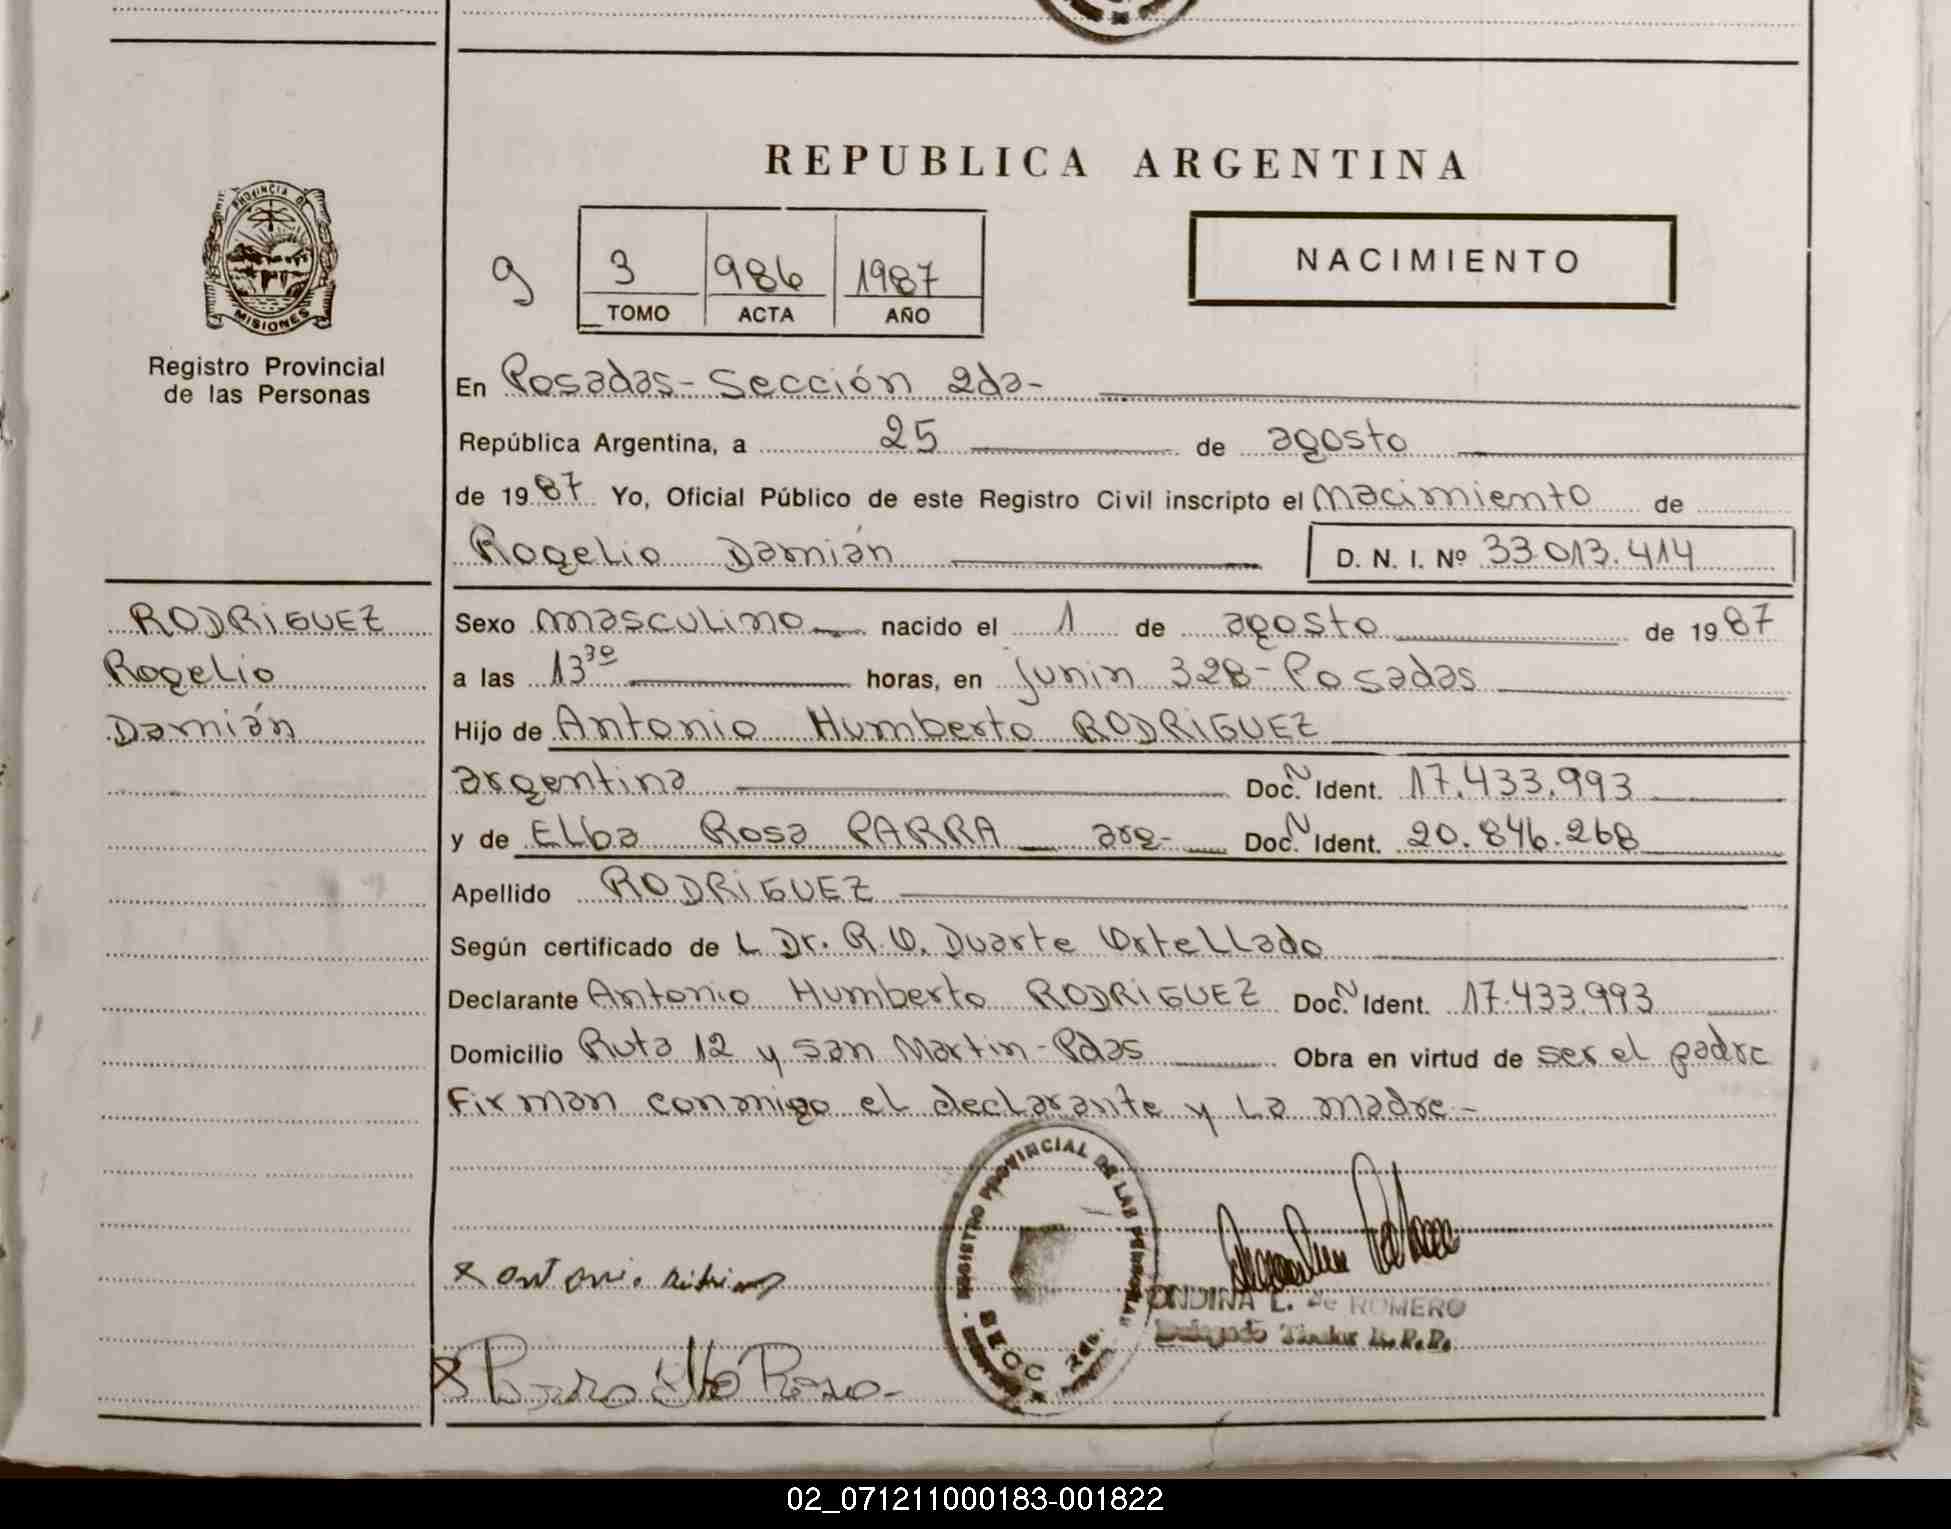 REPUBLICA ARGENTINA
PROVINCIA DE
MISIONES
Registro Provincial
de las Personas
9
3 986 1987
TOMO ACTA AÑO
NACIMIENTO
En Posadas-Sección 2da-
República Argentina, a 25 de agosto
de 1987 Yo, Oficial Público de este Registro Civil inscripto el nacimiento de
Rogelio Damián D. N. I. Nº 33.013.414
RODRIGUEZ
Rogelio
Damián
Sexo masculino nacido el 1 de agosto de 1987
a las 13 30 horas, en Junin 328-Posadas
Hijo de Antonio Humberto RODRIGUEZ
argentina Doc. N Ident. 17.433.993
y de Elba Rosa PARRA arg- Doc. N Ident. 20.846.268
Apellido RODRIGUEZ
Según certificado de L Dr. R.O. Duarte Ortellado
Declarante Antonio Humberto RODRIGUEZ Doc. N Ident. 17.433.993
Domicilio Ruta 12 y San Martin-Pdas Obra en virtud de ser el padre
Firman conmigo el declarante y la madre-
REGISTRO PROVINCIAL DE LAS PERSONAS
SECC 2da.
ONDINA L. de ROMERO
Delegado Titular R.P.P.
02_071211000183-001822